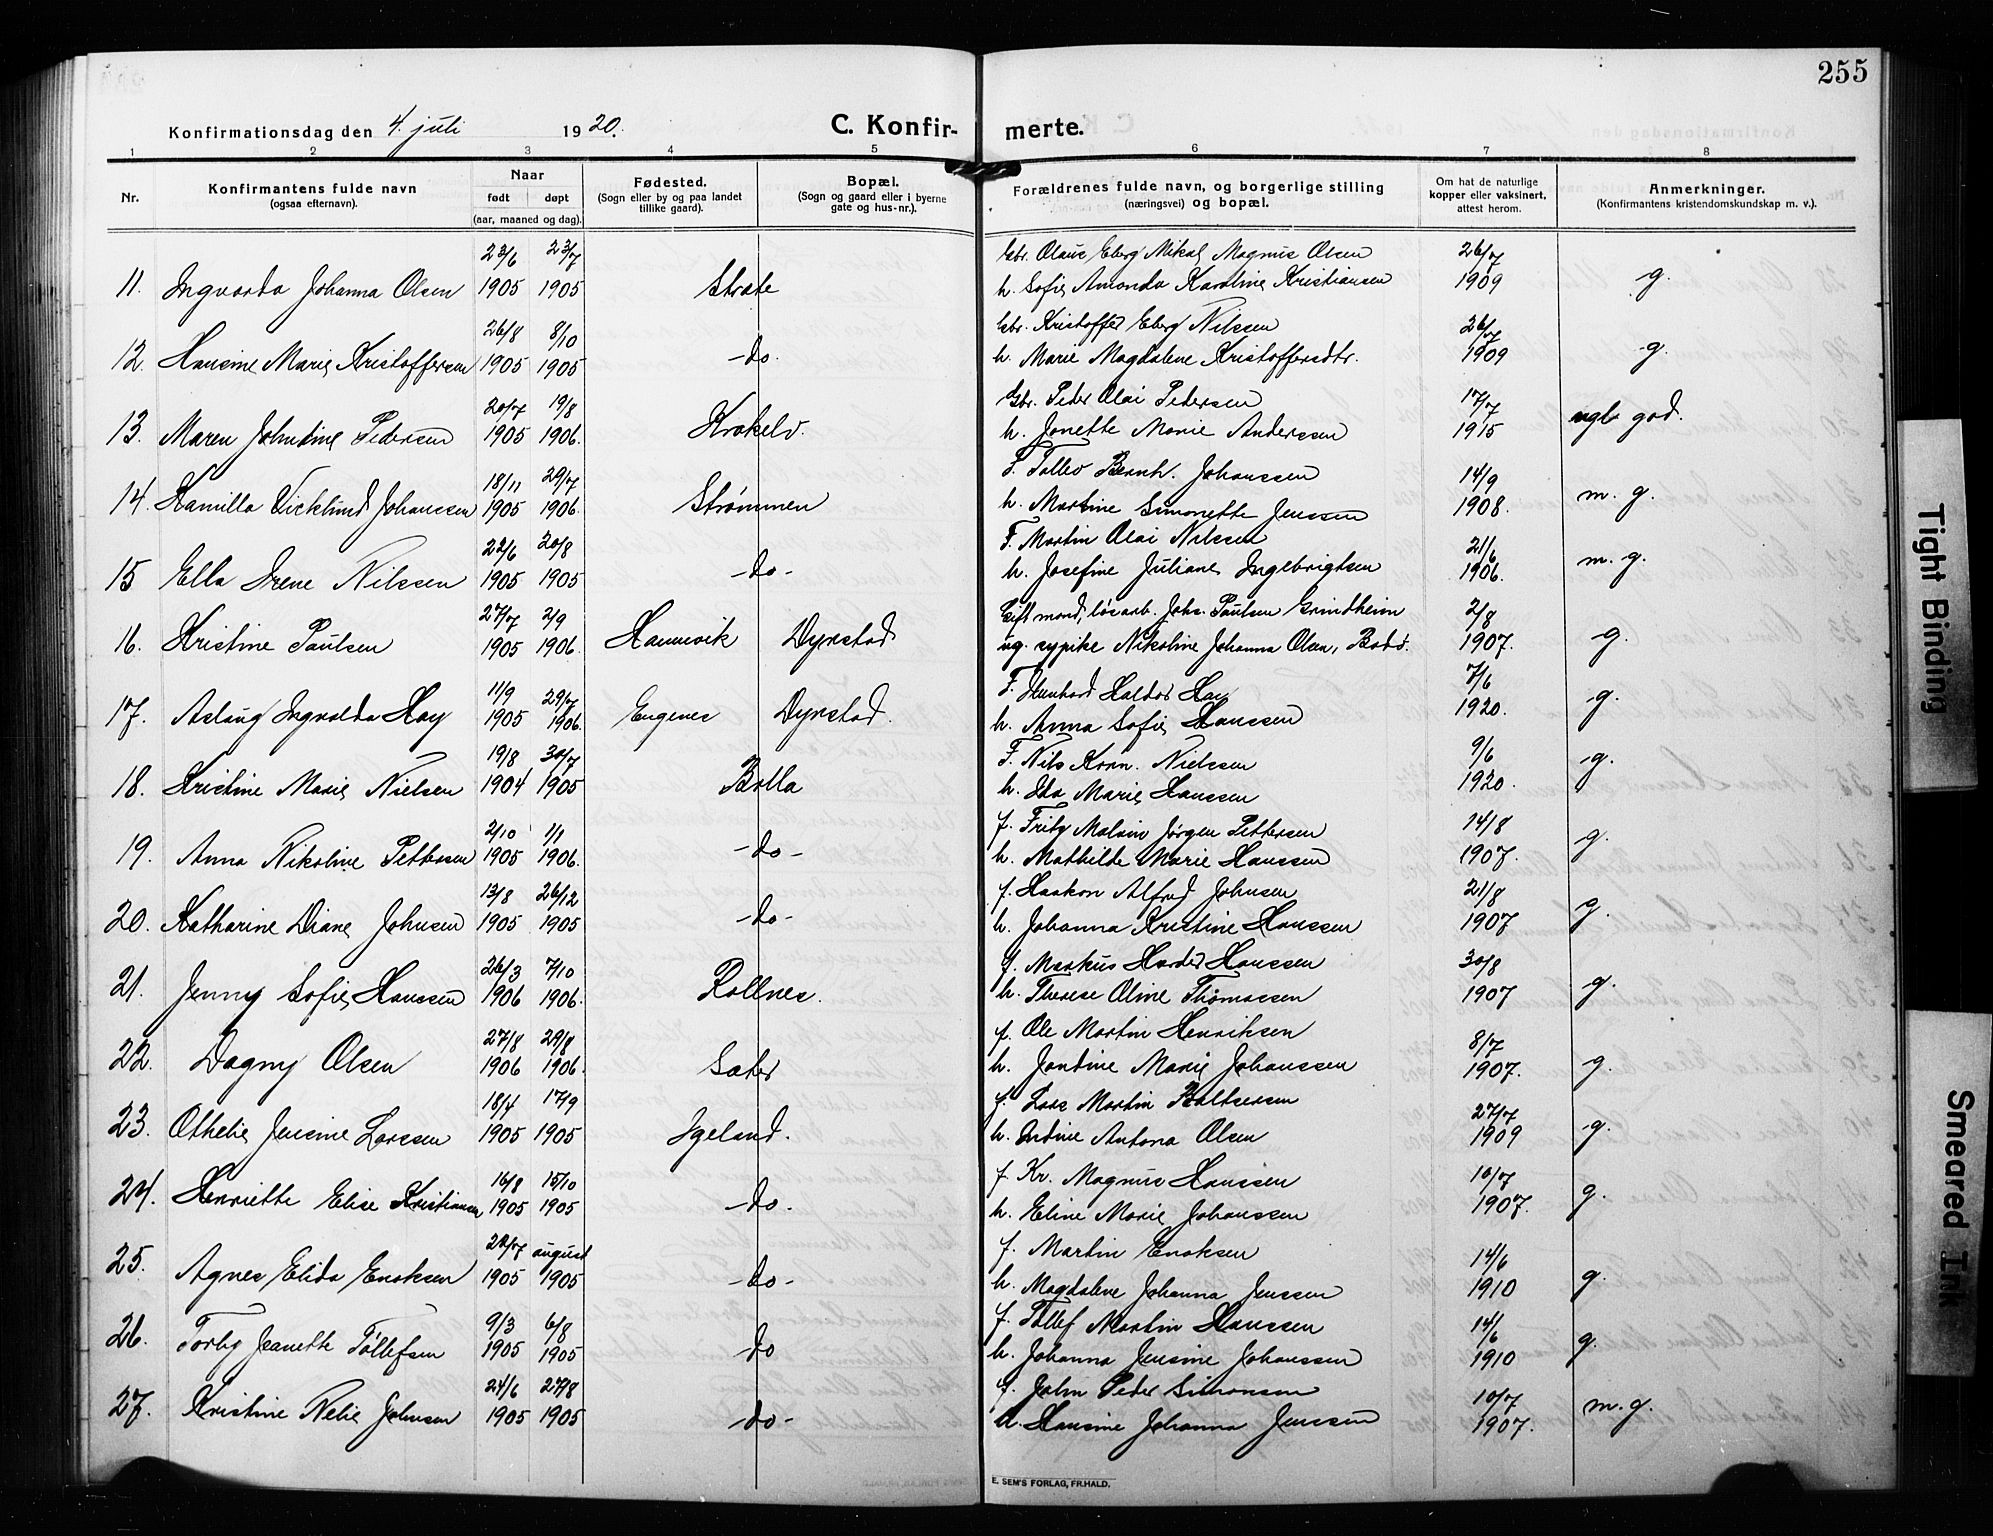 255
Konfirmationsdag den 4. juli 1920. C. Konfirmerte.
1 2 3 4 5 6 7 8
Nr. Konfirmantens fulde navn (ogsaa efternavn). Naar født døpt (aar, maaned og dag). Fødested. (Sogn eller by og paa landet tillike gaard). Bopæl. (Sogn og gaard eller i byerne gate og hus-nr.). Forældrenes fulde navn, og borgerlige stilling (næringsvei) og bopæl. Om hat de naturlige kopper eller vaksinert, attest herom. Anmerkninger. (Konfirmantens kristendomskundskap m. v.).
23/6 23/7 Gbr. Olaus Eberg Mikal Magnus Olsen 26/7
11. Ingvarda Johanna Olsen 1905 1905 Strate h. Sofie Amanda Karoline Kristiansen 1909 g.
26/8 8/10 Gbr. Kristoffer Eberg Nilssen 26/7
12. Hansine Marie Kristoffersen 1905 1905 -do. h. Marie Magdalene Kristoffersdtr. 1909 g.
20/7 19/8 Gbr. Peder Olai Pedersen 17/7
13. Maren Johndine Pedersen 1905 1906. Krakelv. h. Jonette Marie Anderssen 1915 god.
18/11 29/7 F. Tollev Bernh. Johanssen 14/9
14. Kamilla Vicklund Johanssen 1905 1906 Strømmen h. Martine Simonette Jenssen 1908. m. g.
22/6 20/8 F. Martin Olai Nilssen 21/6
15 Ella Irene Nilssen 1905 1905 -do- h. Josefine Juliane Ingebrigtsen 1906. m. g.
27/7 2/9 Gift mand, løsarb. Johs. Paulsen Grindheim 2/8
16. Kristine Paulsen 1905 1906. Hamnvik Dyrstad ug. sypike Nikoline Johanna Olsen, Bodø. 1907. g.
11/9 29/7 F. Haldor Hay 7/6
17. Aslaug Ingvalda Hay 1905 1906. Engenes Dyrstad. h. Anna Sofie Hanssen 1920. g.
19/8 30/7 F. Nils Korn. Nielssen 9/6
18. Kristine Marie Nielsen 1904 1905 Bolla h. Ida Marie Hanssen 1920. g.
2/10 1/1 f. Fritz Malvin Jørgen Pettersen 14/8
19. Anna Nikoline Pettersen 1905 1906. -do- h. Mathilde Marie Hanssen 1907. g.
13/8 26/12 f. Haakon Alfred Johnsen 21/8
20. Katharine Diane Johnsen 1905 1905 -do- h. Johanna Kristine Hanssen 1907 g.
26/3 7/10 f. Markus Harder Hanssen 30/8
21. Jenny Sofie Hanssen 1906 1906. Rollnes. h. Therese Oline Thomassen 1907 g.
27/8 29/8 f. Ole Martin Henriksen 8/7
22. Dagny Olsen 1906 1906. Sæter h. Jondine Marie Johanssen 1907. g.
18/4 17/9 f. Lars Martin Baltsersen 27/7
23. Othelie Jensine Larssen 1905 1905 Igeland. h. Indine Antona Olsen 1909 g.
16/8 15/10 f. Kr. Magnus Hanssen 10/7
24. Henriette Elise Kristiansen 1905 1905 -do. h. Eline Marie Johanssen 1907. g.
22/7 august f. Martin Enoksen 14/6
25. Agnes Elida Enoksen 1905 1905 -do- h. Magdalene Johanna Jenssen 1910 g.
9/3 6/8 f. Tollef Martin Hanssen 14/6
26. Torby Jeanette Tollefsen 1905 1905 -do h. Johanna Jensine Johanssen 1910 g.
24/6 27/8 f. John Peder Simonsen 10/7
27. Kristine Nelie Johnsen 1905 1905 -do- h. Hansine Johanna Jenssen 1907. m. g.
E. SEM'S FORLAG, FR.HALD.
Tight Binding
Smeared Ink